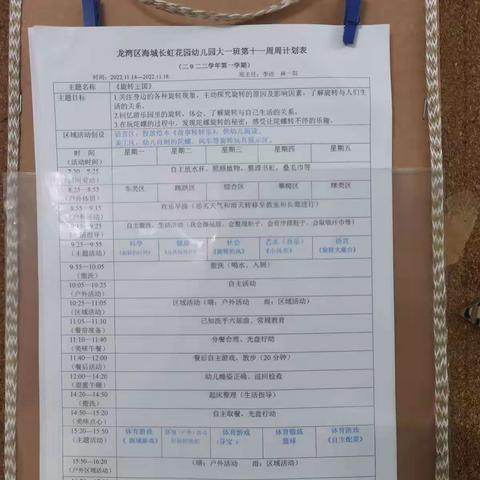 龙湾区海城长虹花园幼儿园大一班第十一周周计划表
（二〇二二学年第一学期）
时间：2022.11.14—2022.11.18 班主任：李洁
主题名称 《旋转王国》
主题目标 1.关注身边的各种旋转现象，主动探究旋转的原因及影响因素，了解旋转与人们生活的关系。
2.回忆游乐园里的旋转，体会、了解旋转与自己生活的关系。
3.在玩陀螺的过程中，发现陀螺旋转的秘密，感受让陀螺转不停的乐趣。
区域活动创设 语言区：投放绘本《故事转转乐》，供幼儿阅读。
美工区：幼儿自制的陀螺、风车等旋转玩具展示区。
时 间
（活动时间） 星期一 星期二 星期三 星期四 星期五
8:25—8:55
（户外体锻） 东莞区 跳跃区 综合区 攀爬区 球类区
8:55—9:15
9:25—9:55
（主题活动） 科学 健康 社会
《旋转的秋》 艺术（音乐）
《小风车》 语言
《旋转大集合》
9:55—10:05
（盥洗） 盥洗（喝水、入厕）
10:05—10:25
（户外活动） 自主活动
10:25—11:05
（区域活动） 区域活动（晴：户外活动 雨：区域活动）
11:05—11:10
（餐前准备） 已知洗手六部曲、常规教育
11:10—11:40
（美味午餐） 分餐合理、光盘行动
11:40—12:00
（餐后活动） 餐后自主游戏、散步（20 分钟）
12:00—14:20
（甜蜜午睡） 幼儿睡姿正确、巡回检查
14:20—14:50
（盥洗） 起床整理（生活指导）
14:50—15:20
（美味点心） 自主取餐、光盘行动
15:20—15:50
（主题活动） 体育游戏 体育游戏 体育锻炼
篮球 体育游戏
《自主配菜》
15:50—16:20
（户外区域活动） （晴：户外活动 雨：区域活动）